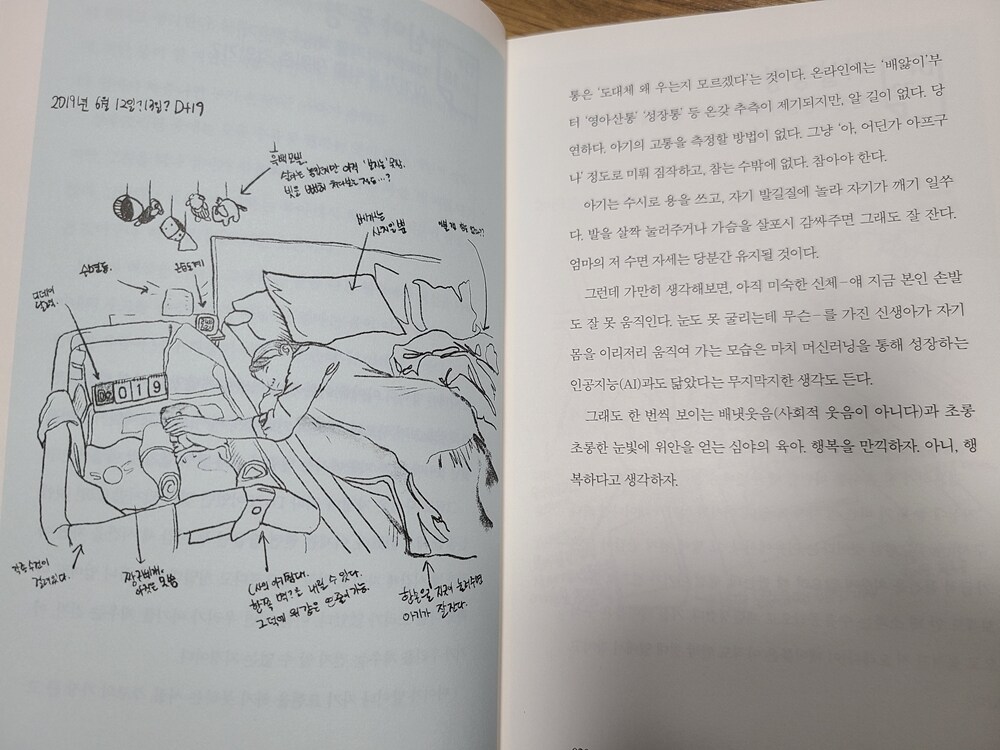 2019년 6월 12일?13일? D+19
흑백모빌.
수면등.
온습도계
배시시는
D+ 019
각종 수건이
걸려있다.
짱구베개.
한쪽 벽?은 내릴 수 있다.
한손을 지긋이 눌러주면
아기가 잘잔다.
통은 ‘도대체 왜 우는지 모르겠다’는 것이다. 온라인에는 ‘배앓이’부
터 ‘영아산통’ ‘성장통’ 등 온갖 추측이 제기되지만, 알 길이 없다. 당
연하다. 아기의 고통을 측정할 방법이 없다. 그냥 ‘아, 어딘가 아프구
나’ 정도로 미뤄 짐작하고, 참는 수밖에 없다. 참아야 한다.
아기는 수시로 용을 쓰고, 자기 발길질에 놀라 자기가 깨기 일쑤
다. 발을 살짝 눌러주거나 가슴을 살포시 감싸주면 그래도 잘 잔다.
엄마의 저 수면 자세는 당분간 유지될 것이다.
그런데 가만히 생각해보면, 아직 미숙한 신체–얘 지금 본인 손발
도 잘 못 움직인다. 눈도 못 굴리는데 무슨–를 가진 신생아가 자기
몸을 이리저리 움직여 가는 모습은 마치 머신러닝을 통해 성장하는
인공지능(AI)과도 닮았다는 무지막지한 생각도 든다.
그래도 한 번씩 보이는 배냇웃음(사회적 웃음이 아니다)과 초롱
초롱한 눈빛에 위안을 얻는 심야의 육아. 행복을 만끽하자. 아니, 행
복하다고 생각하자.